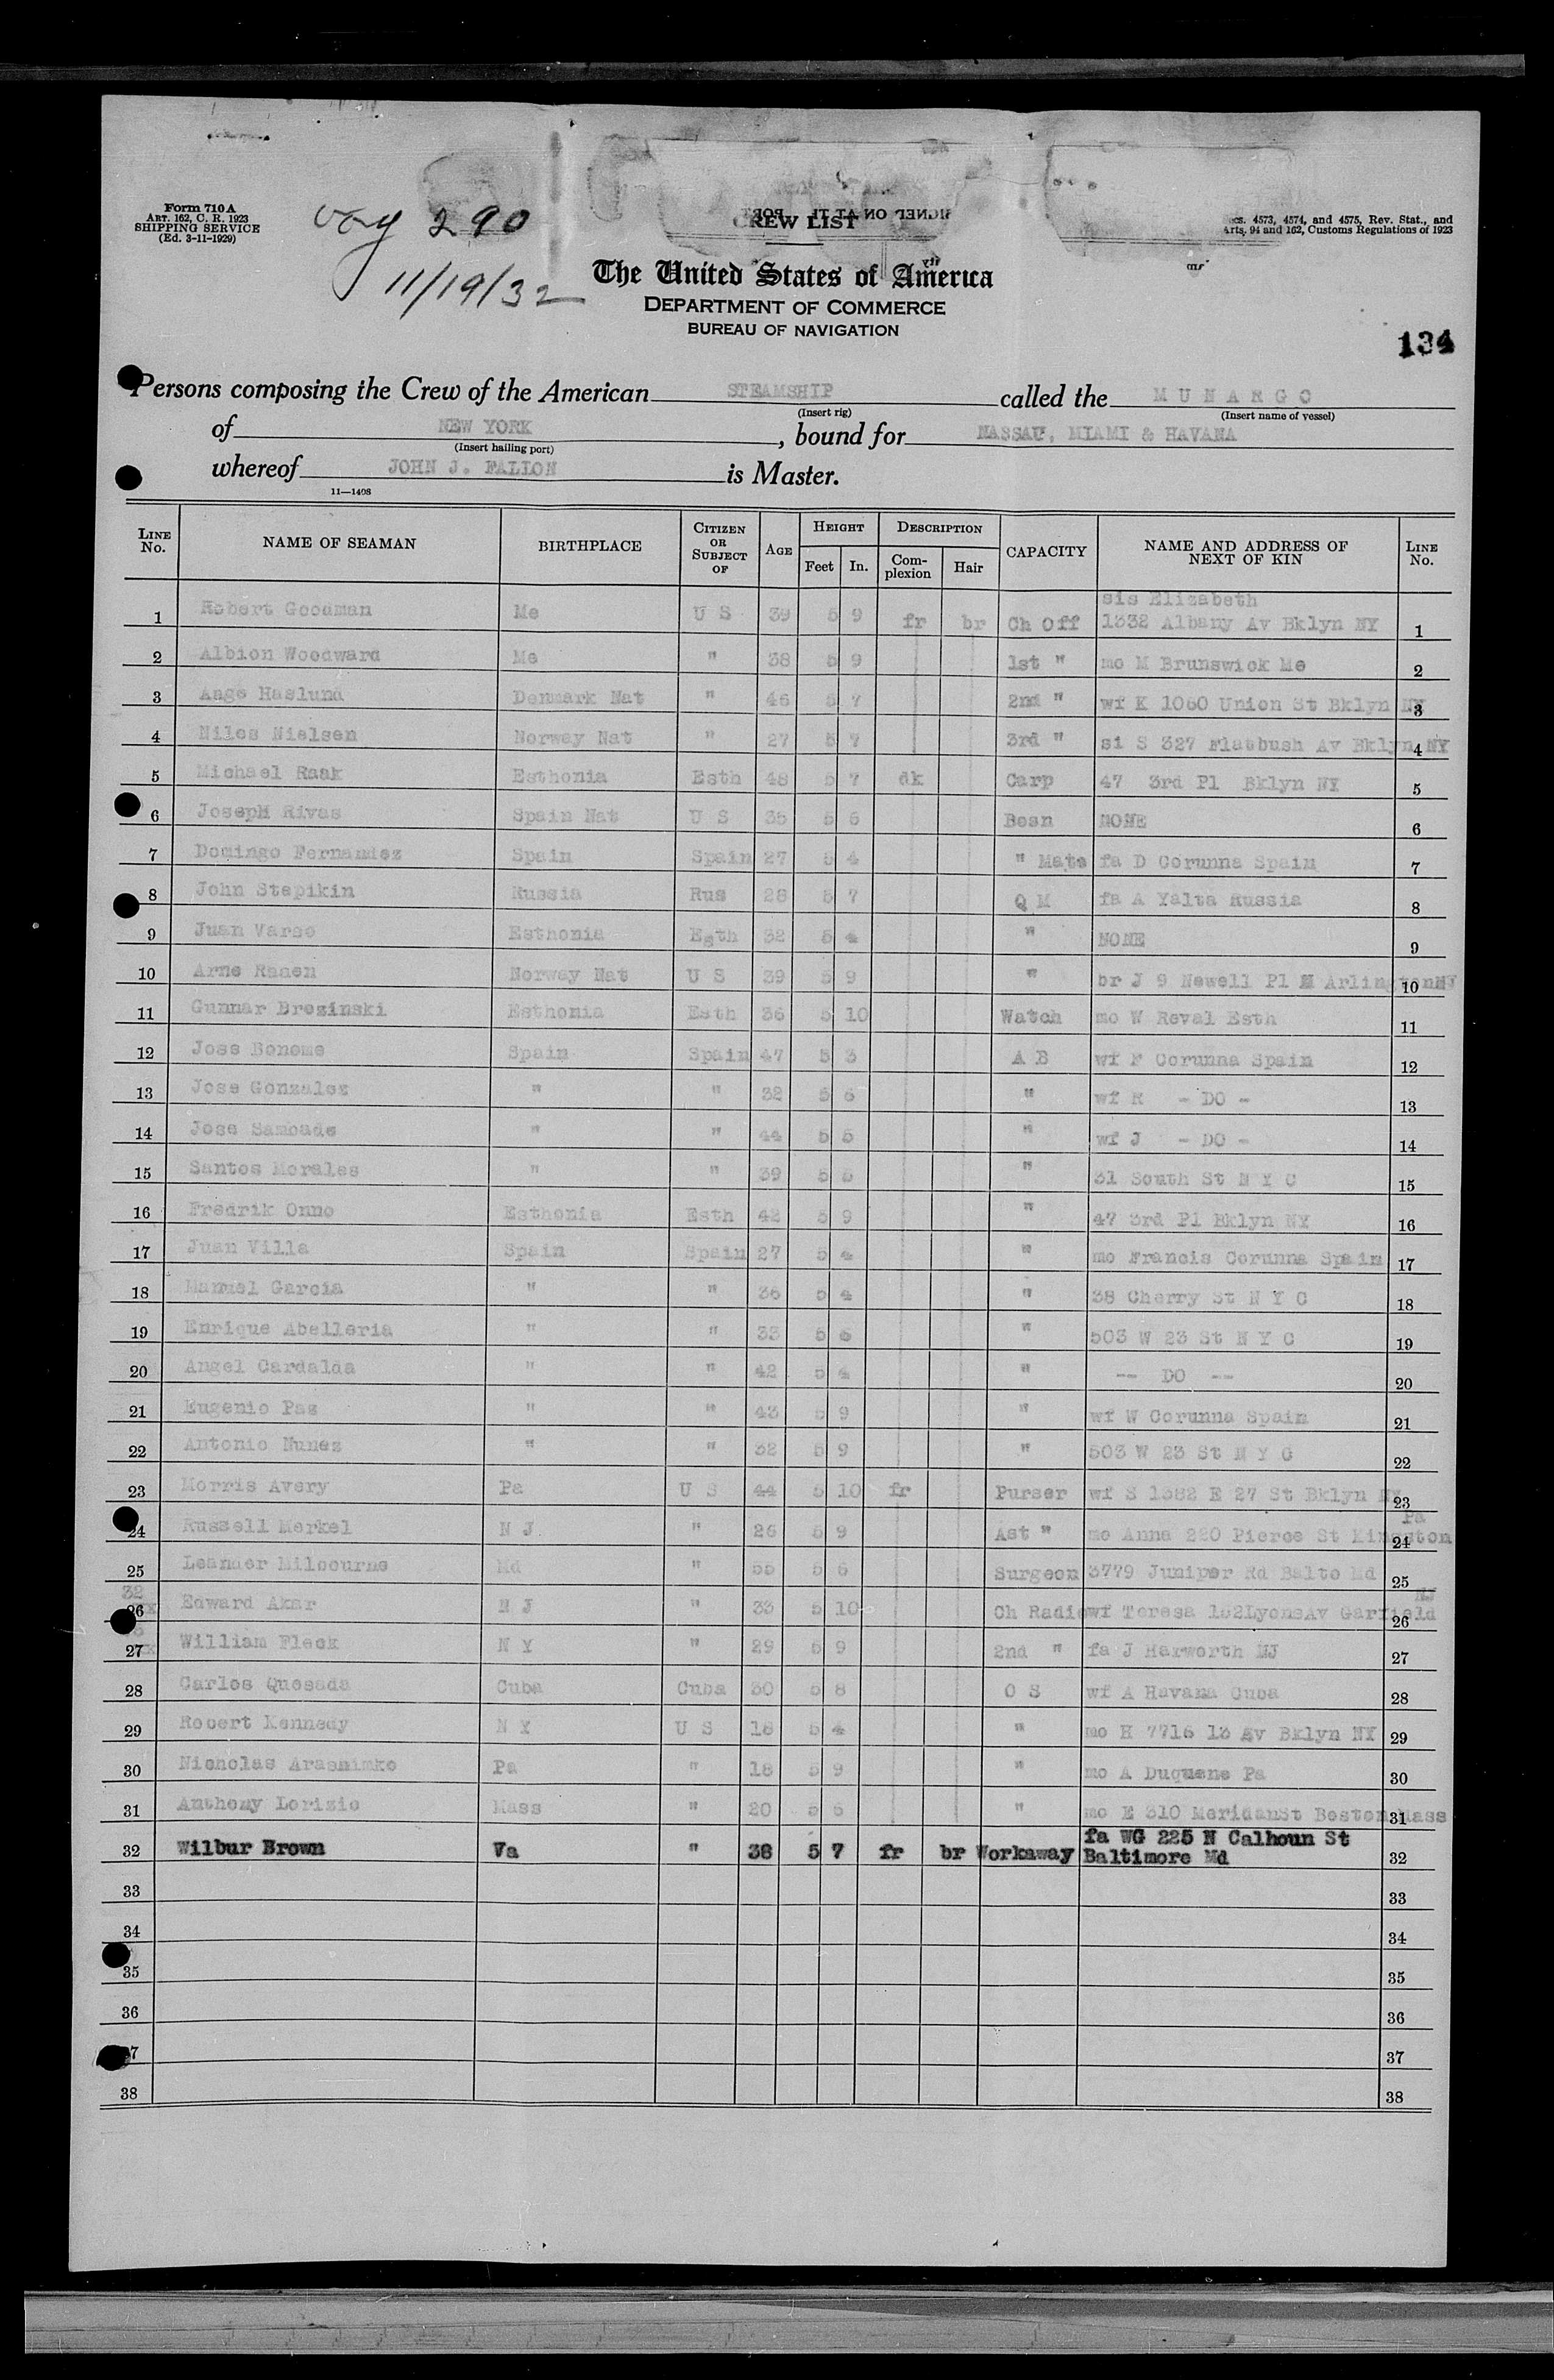 Form 710 A
ART. 162, C. R. 1923
SHIPPING SERVICE
(Ed. 3-11-1929)
Voy 290
11/19/32
CREW LIST
4573, 4574, and 4575, Rev. Stat., and
Arts. 94 and 162, Customs Regulations of 1923
The United States of America
DEPARTMENT OF COMMERCE
BUREAU OF NAVIGATION
134
Persons composing the Crew of the American STEAMSHIP called the MUNARGO
(Insert rig) (Insert name of vessel)
of NEW YORK, bound for NASSAU, MIAMI & HAVANA
(Insert hailing port)
whereof JOHN J. FALLON is Master.
11—1408
LINE No. NAME OF SEAMAN BIRTHPLACE CITIZEN OR SUBJECT OF AGE HEIGHT Feet In. DESCRIPTION Complexion Hair CAPACITY NAME AND ADDRESS OF NEXT OF KIN LINE No.
sis Elizabeth
1 Robert Goodman Me U S 39 5 9 fr br Ch Off 1332 Albany Av Bklyn NY 1
2 Albion Woodward Me " 38 5 9 1st " mo M Brunswick Me 2
3 Aage Haslund Denmark Nat " 46 5 7 2nd " wf K 1060 Union St Bklyn NY 3
4 Niles Nielsen Norway Nat " 27 5 7 3rd " si S 327 Flatbush Av Bklyn NY 4
5 Michael Raak Esthonia Esth 48 5 7 dk Carp 47 3rd Pl Bklyn NY 5
6 JosepH Rivas Spain Nat U S 35 5 6 Bosn NONE 6
7 Domingo Fernandez Spain Spain 27 5 4 " Mate fa D Corunna Spain 7
8 John Stepikin Russia Rus 28 5 7 Q M fa A Yalta Russia 8
9 Juan Varso Esthonia Esth 32 5 4 " NONE 9
10 Arne Raaen Norway Nat U S 39 5 9 " br J 9 Newell Pl N Arlington NJ 10
11 Gunnar Brozinski Esthonia Esth 36 5 10 Watch mo W Reval Esth 11
12 Jose Bonome Spain Spain 47 5 3 A B wf F Corunna Spain 12
13 Jose Gonzalez " " 32 5 6 " wf R - DO - 13
14 Jose Sambade " " 44 5 5 " wf J - DO - 14
15 Santos Morales " " 39 5 5 " 31 South St N Y C 15
16 Fredrik Onno Esthonia Esth 42 5 9 " 47 3rd Pl Bklyn NY 16
17 Juan Villa Spain Spain 27 5 4 " mo Francis Corunna Spain 17
18 Manuel Garcia " " 36 5 4 " 38 Cherry St N Y C 18
19 Enrique Abelleria " " 33 5 6 " 503 W 23 St N Y C 19
20 Angel Cardalda " " 42 5 4 " -- DO -- 20
21 Eugenio Pas " " 43 5 9 " wf W Corunna Spain 21
22 Antonio Nunez " " 32 5 9 " 503 W 23 St N Y C 22
23 Morris Avery Pa U S 44 5 10 fr Purser wf S 1382 E 27 St Bklyn NY 23
Pa
24 Russell Merkel N J " 26 5 9 Ast " mo Anna 220 Pierce St Kingston 24
25 Leander Milbourne Md " 55 5 6 Surgeon 3779 Juniper Rd Balto Md 25
32 NJ
26 Edward Akar N J " 33 5 10 Ch Radio wf Teresa 152LyonsAv Garfield 26
27 William Fleck N Y " 29 5 9 2nd " fa J Harworth NJ 27
28 Carlos Quesada Cuba Cuba 30 5 8 O S wf A Havana Cuba 28
29 Robert Kennedy N Y U S 18 5 4 " mo H 7716 13 Av Bklyn NY 29
30 Nicholas Arasnimko Pa " 18 5 9 " mo A Duquene Pa 30
31 Anthony Lorizio Mass " 20 5 5 " mo E 310 MeridanSt Boston Mass 31
fa WG 225 N Calhoun St
32 Wilbur Brown Va " 38 5 7 fr br Workaway Baltimore Md 32
33 33
34 34
35 35
36 36
37 37
38 38